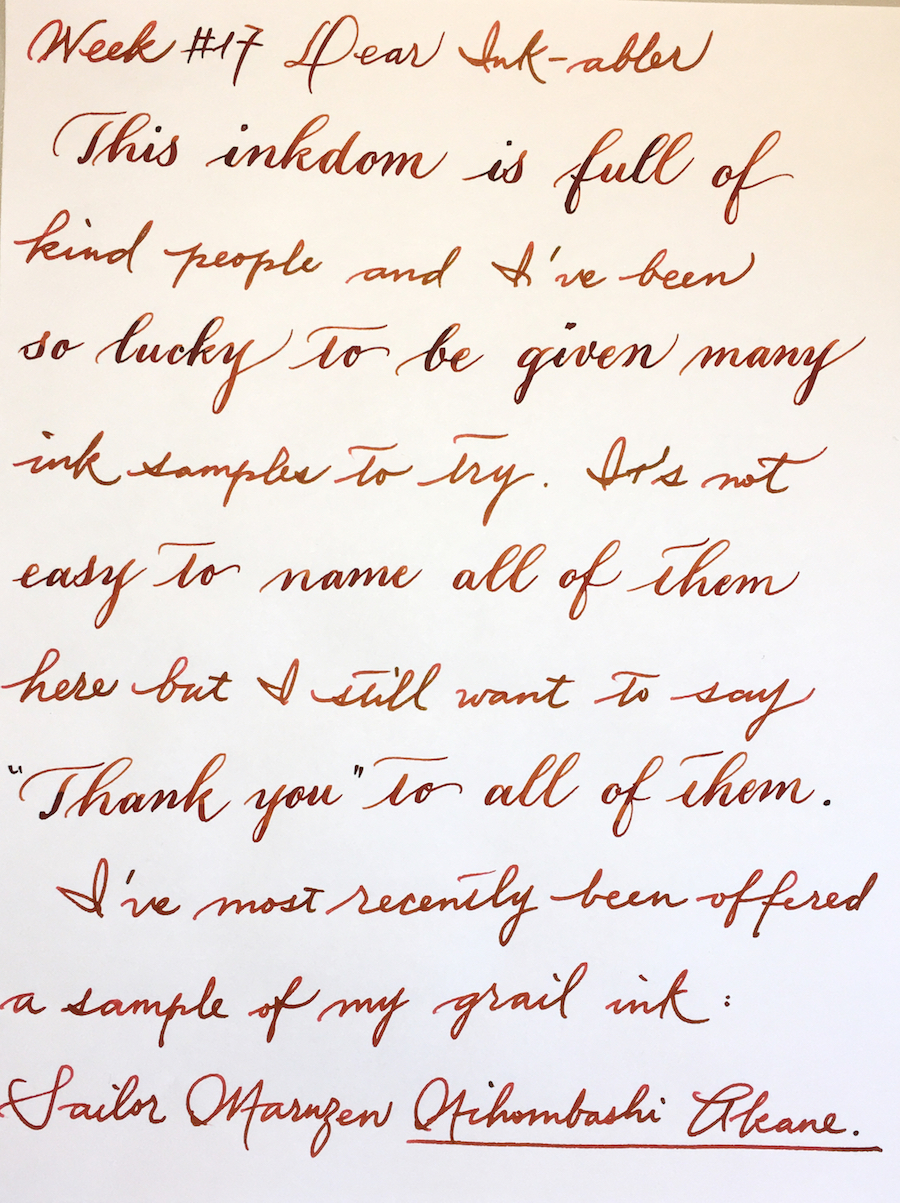 Week #17 Dear Ink-abler
This inkdom is full of
kind people and I've been
so lucky to be given many
ink samples to try. It's not
easy to name all of them
here but I still want to say
"Thank you" to all of them.
I've most recently been offered
a sample of my grail ink:
Sailor Maruzen Nihombashi Akane.